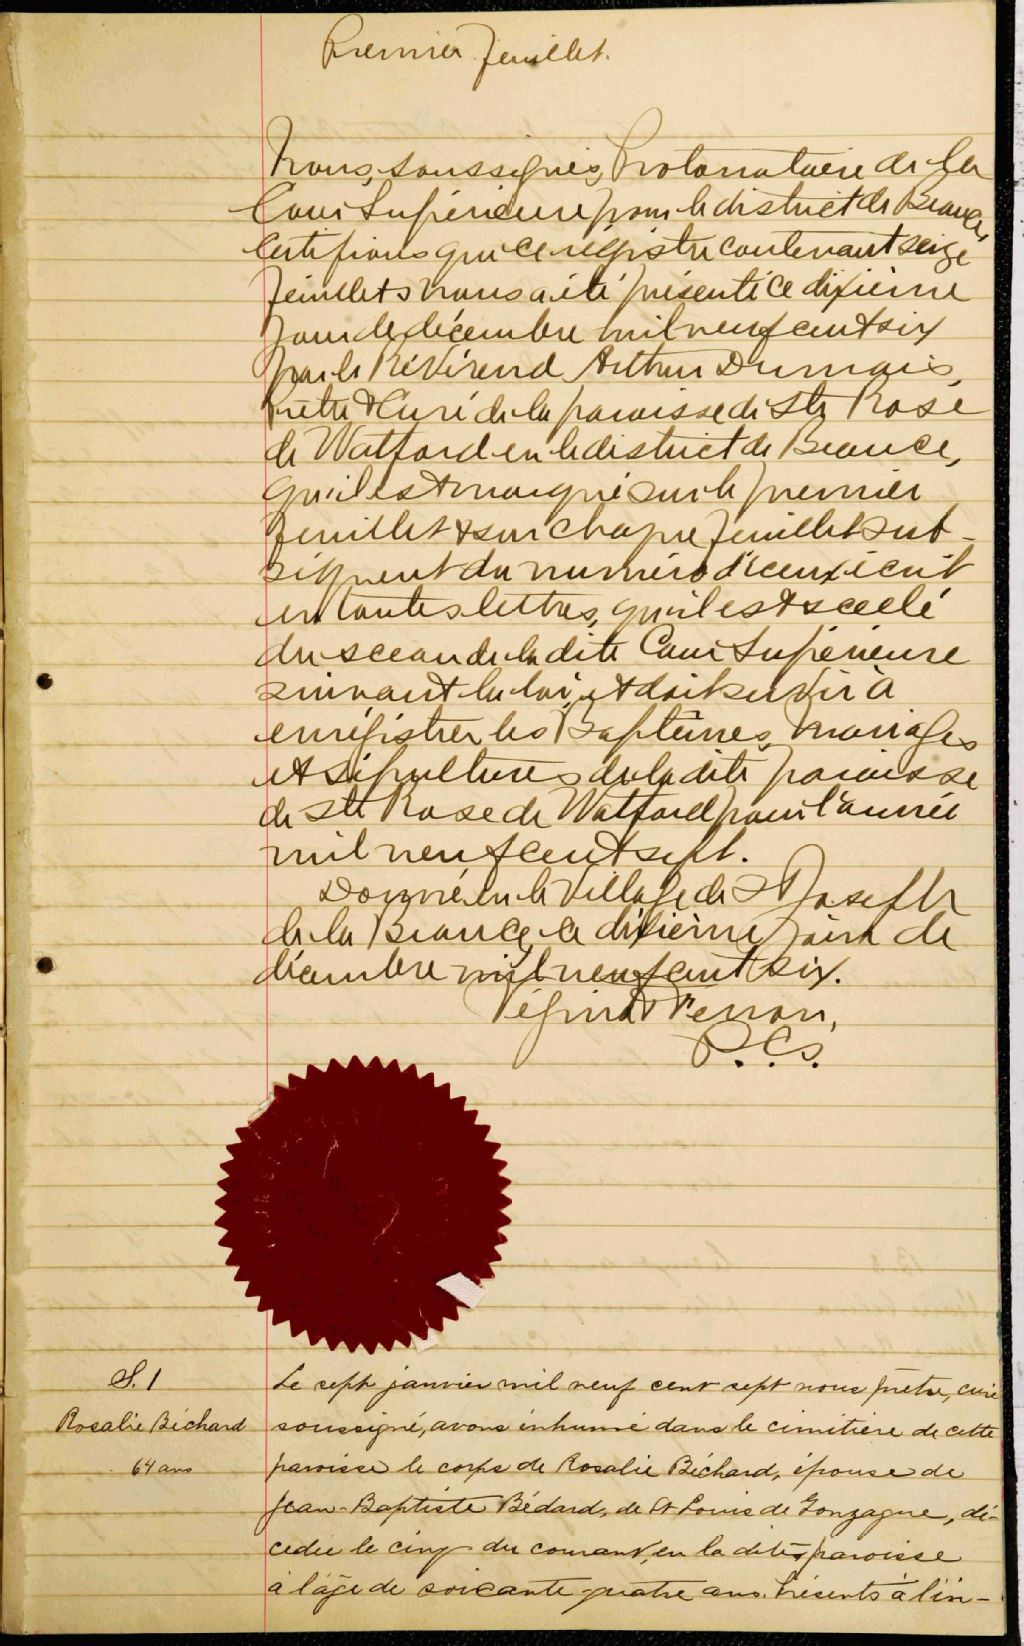 Premier feuillet.
Nous, soussignés, Protonotaire de la
Cour Supérieure pour le district de Beauce,
Certifions que ce registre contenant seize
feuillets nous a été présenté ce dixième
jour de décembre mil neuf cent six
par le Révérend Arthur Dumais,
Prêtre & Curé de la paroisse de Ste Rose
de Watford en le district de Beauce,
qu'il est marqué sur le premier
feuillet & sur chaque feuillet sub-
séquent du numéro d'iceux écrit
en toutes lettres, qu'il est scellé
du sceau de la dite Cour Supérieure
suivant la loi, et doit servir à
enregistrer les Baptêmes, Mariages
et Sépultures de la dite paroisse
de Ste Rose de Watford pour l'année
mil neuf cent sept.
Donné en le Village de St Joseph
de la Beauce, ce dixième jour de
décembre mil neuf cent six.
Perron,
P.C.S.
S. 1
Rosalie Béchard
64 ans
Le sept janvier mil neuf cent sept nous prêtre, curé
soussigné, avons inhumé dans le cimitière de cette
paroisse le corps de Rosalie Béchard, épouse de
Jean-Baptiste Bédard, de St Louis de Gonzague, dé-
cédée le cinq du courant, en la dite paroisse
à l'âge de soixante-quatre ans. Présents à l'in-